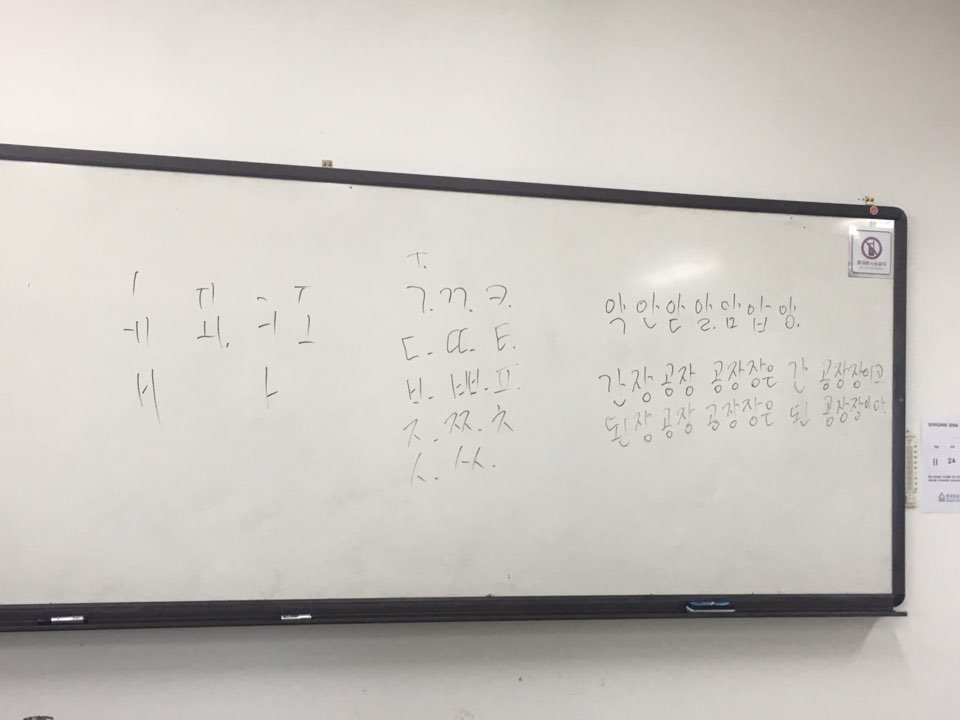 ㅣ ㅟ ㅡ ㅜ
ㅔ ㅚ. ㅓ ㅗ
ㅐ ㅏ
ㅜ.
ㄱ. ㄲ. ㅋ.
ㄷ. ㄸ. ㅌ.
ㅂ. ㅃ. ㅍ.
ㅈ. ㅉ. ㅊ
ㅅ. ㅆ.
악 안 앋 알 암 압 앙.
간장 공장 공장장은 간 공장장이고
된장 공장 공장장은 된 공장장이다.
휴대폰사용금지